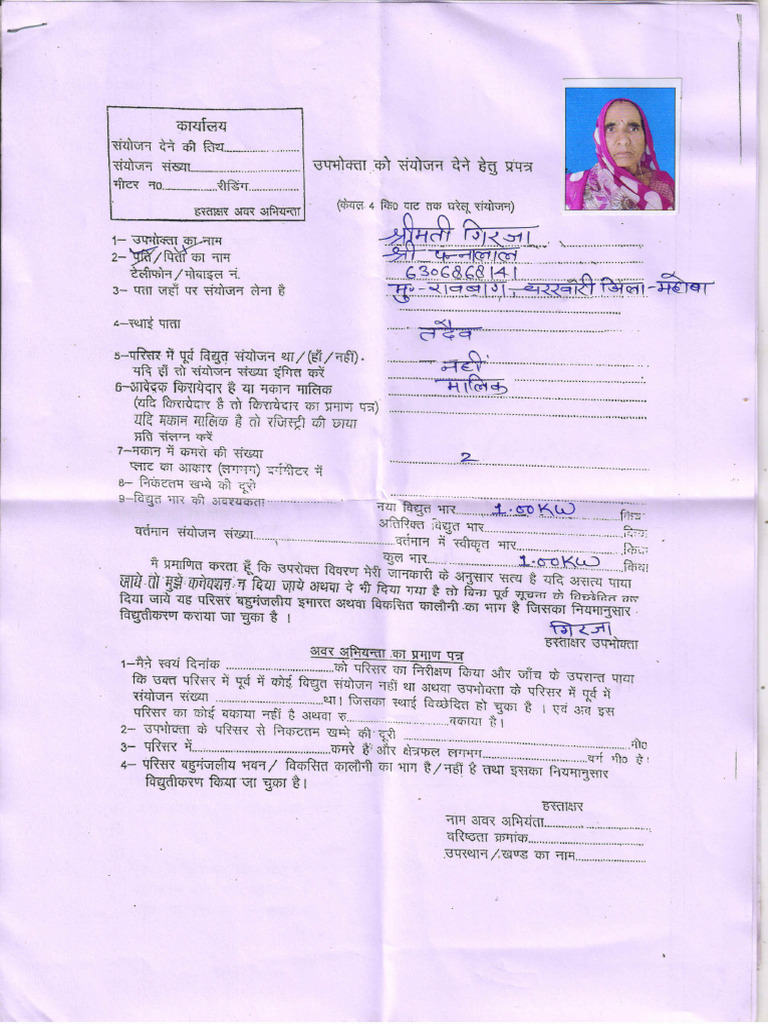 कार्यालय
संयोजन देने की तिथ....................
संयोजन संख्या............................
मीटर न0.............रीडिंग.............
हस्ताक्षर अवर अभियन्ता
उपभोक्ता को संयोजन देने हेतु प्रपत्र
(केवल 4 कि0 वाट तक घरेलू संयोजन)
1– उपभोक्ता का नाम श्रीमती गिरजा
2– पति/पिता का नाम श्री- पन्नालाल
टेलीफोन/मोबाइल नं. 6306868141
3– पता जहाँ पर संयोजन लेना है मु- रावबाग, चरखारी जिला-महोबा
4–स्थाई पाता तदैव
5–परिसर में पूर्व विद्युत संयोजन था/(हाँ/नहीं). नही
यदि हाँ तो संयोजन संख्या इंगित करें
6–आवेद्रक किरायेदार है या मकान मालिक मालिक
(यदि किरायेदार है तो किरायेदार का प्रमाण पत्र)
यदि मकान मालिक है तो रजिस्ट्री की छाया
प्रति संलग्न करें
7–मकान में कमरो की संख्या 2
प्लाट का आकार (लगभग) वर्गमीटर में
8– निकटतम खम्बे की दूरी
9–विद्युत भार की अवश्यकता................ नया विद्युत भार 1.00KW
अतिरिक्त विद्युत भार....................
वर्तमान संयोजन संख्या....................वर्तमान में स्वीकृत भार....................
कुल भार 1.00KW
मै प्रमाणित करता हूँ कि उपरोक्त विवरण मेरी जानकारी के अनुसार सत्य है यदि असत्य पाया
जाये तो मुझे कनेक्शन न दिया जाये अथवा दे भी दिया गया है तो बिना पूर्व सूचना के विच्छेदित कर
दिया जाये यह परिसर बहुमंजलीय इमारत अथवा विकसित कालौनी का भाग है जिसका नियमानुसार
विद्युतीकरण कराया जा चुका है ।
गिरजा
हस्ताक्षर उपभोक्ता
अवर अभियन्ता का प्रमाण पत्र
1–मैने स्वयं दिनांक ....................को परिसर का निरीक्षण किया और जाँच के उपरान्त पाया
कि उक्त परिसर में पूर्व में कोई विद्युत संयोजन नहीं था अथवा उपभोक्ता के परिसर में पूर्व में
संयोजन संख्या ....................था। जिसका स्थाई विच्छेदित हो चुका है । एवं अब इस
परिसर का कोई बकाया नहीं है अथवा रु....................बकाया है।
2– उपभोक्ता के परिसर से निकटतम खम्बे की दूरी ....................मी0
3– परिसर में....................कमरे है और क्षेत्रफल लगभग....................वर्ग मी0 है।
4– परिसर बहुमंजलीय भवन/ विकसित कालौनी का भाग है/नहीं है तथा इसका नियमानुसार
विद्युतीकरण किया जा चुका है।
हस्ताक्षर
नाम अवर अभियंता....................
वरिष्ठता क्रमांक....................
उपस्थान/खण्ड का नाम....................